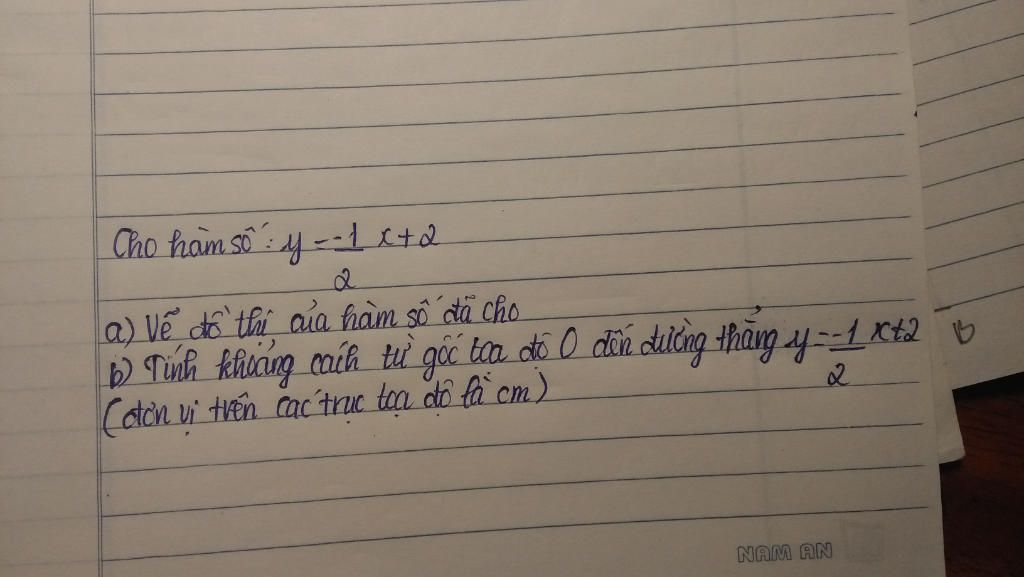 Cho hàm số: y = -1/2 x + 2
a) Vẽ đồ thị của hàm số đã cho
b) Tính khoảng cách từ gốc tọa độ O đến đường thẳng y = -1/2 x + 2
(đơn vị trên các trục tọa độ là cm)
NAM AN